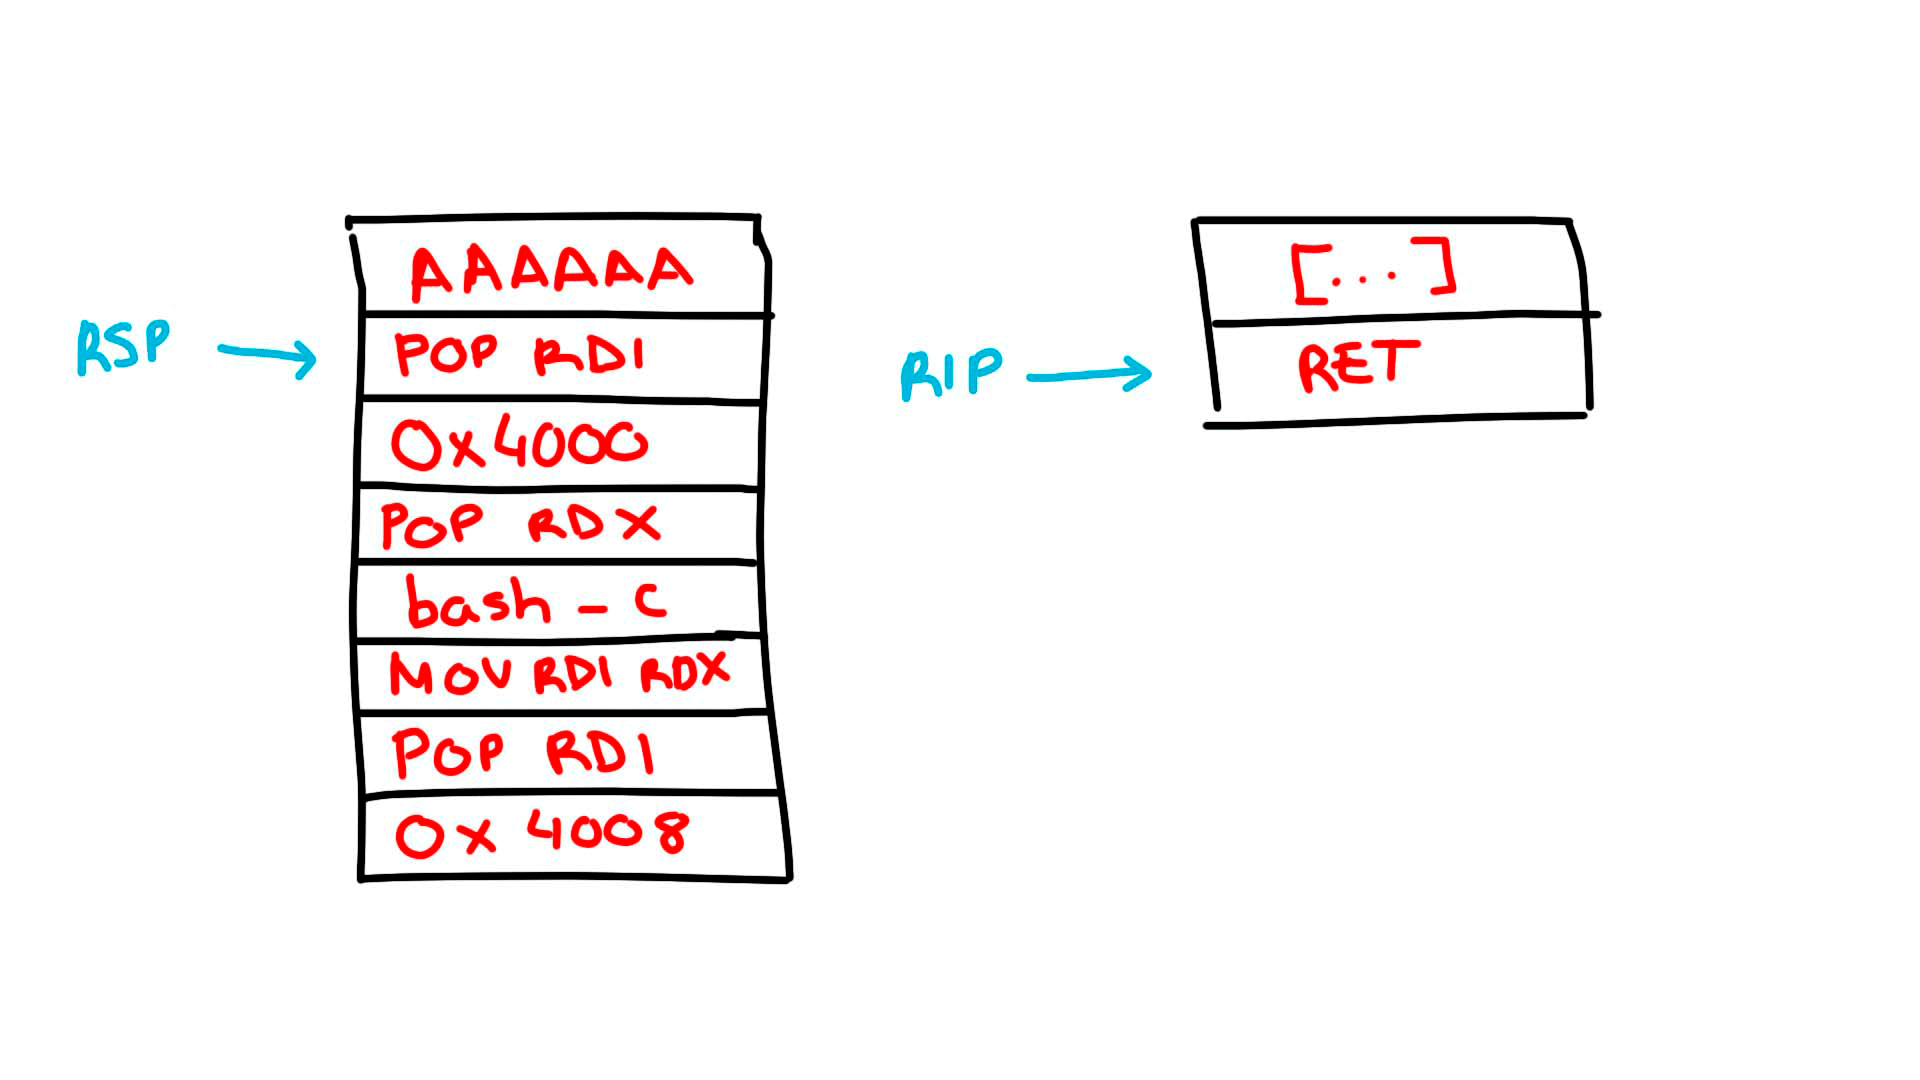 AAAAAA
RSP
POP RDI
0x4000
POP RDX
bash - c
MOV RDI RDX
POP RDI
0x 4008
[...]
RIP
RET